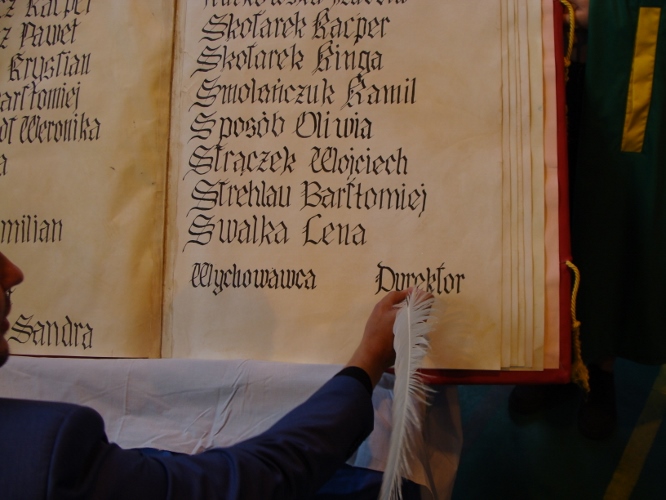 Kacper
Paweł
Krystian
Bartłomiej
Weronika
milian
Sandra
Skolarek Kacper
Skolarek Kinga
Smolańczuk Kamil
Sposób Oliwia
Strączek Wojciech
Strehlau Bartłomiej
Swalka Lena
Wychowawca Dyrektor